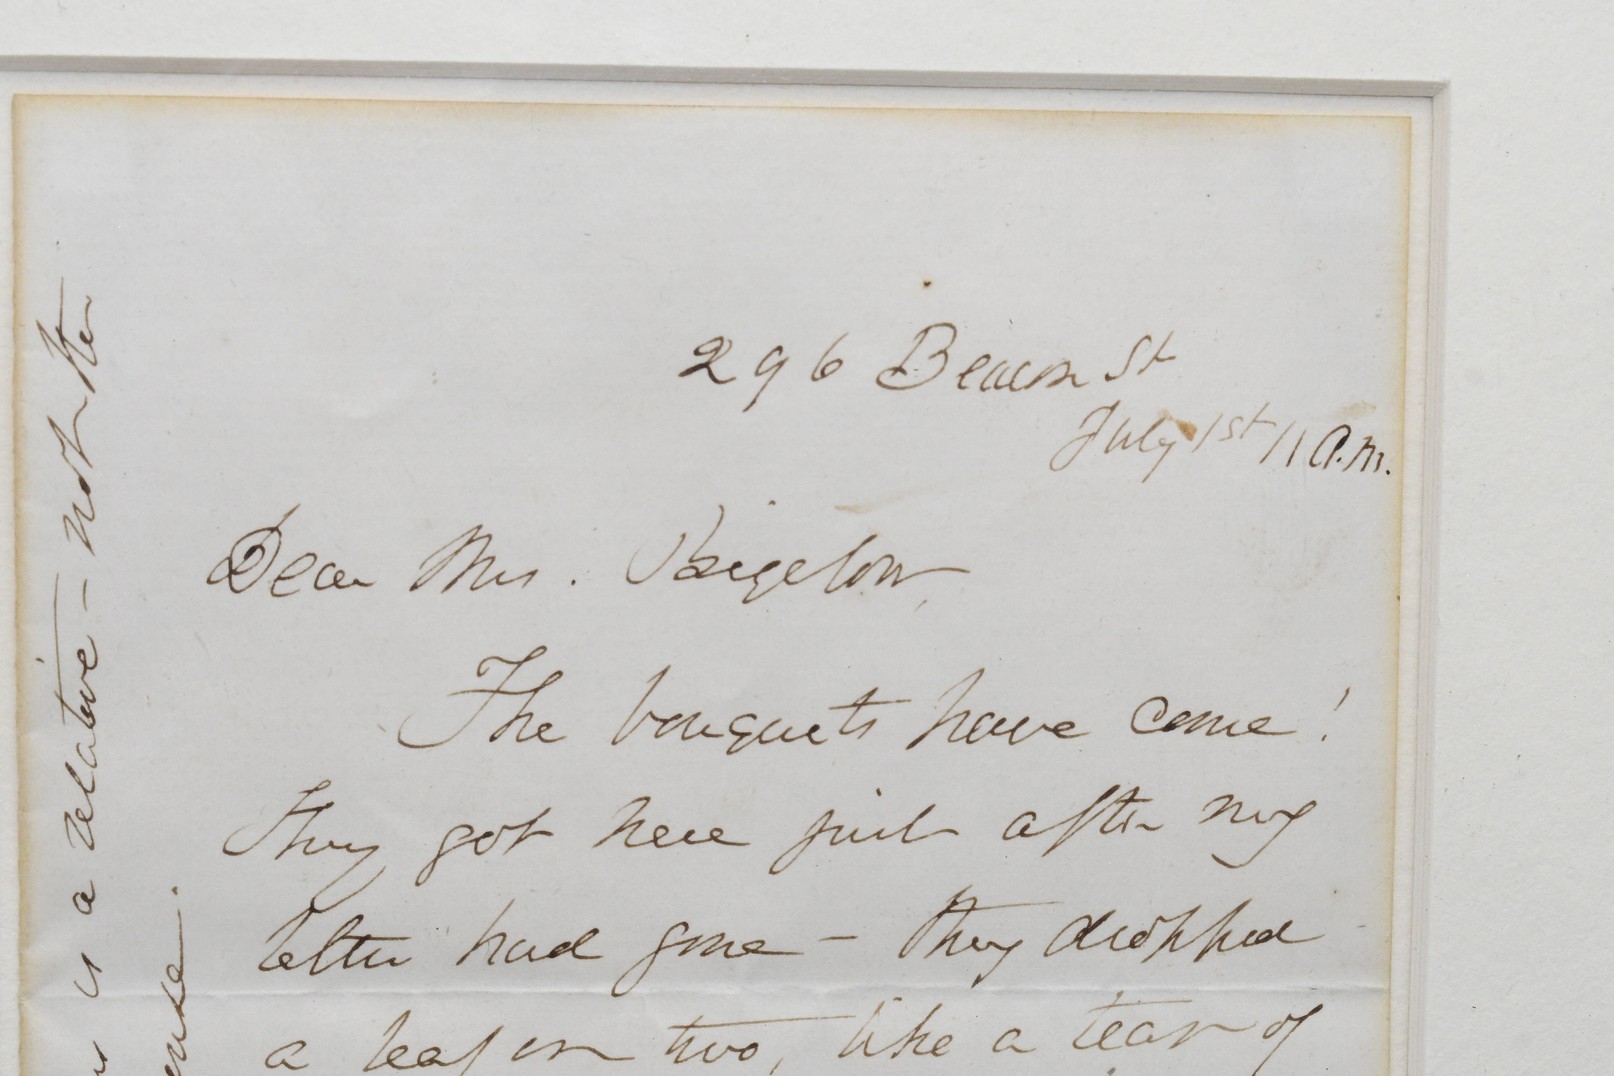 296 Beacon St
July 1st 11 A.M.
Dear Mrs. Bigelow,
The bouquets have come!
They got here just after my
letter had gone – they dropped
a leaf or two, like a tear of
is a relative – not the